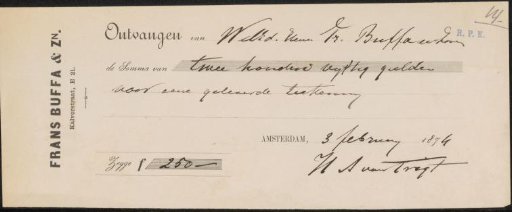 14.
R. P. K.
FRANS BUFFA & ZN.
Kalverstraat, H 21.
Ontvangen van Buffa en Zoon
de Somma van twee honderd vyftig gulden
voor eene geleverde teekening
AMSTERDAM, 3 february 1874
Zegge f 250—
H A van Trigt